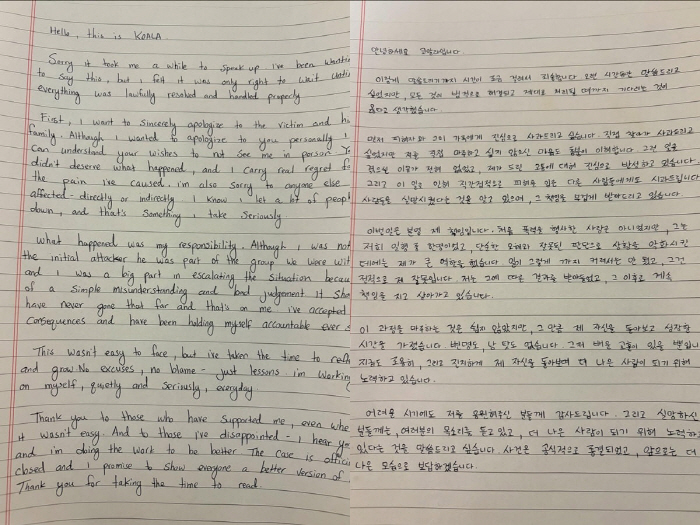 Hello, this is KOALA.
Sorry it took me a while to speak up i've been
to say this, but i felt it was only right to wait until
everything was lawfully resolved and handled properly
First, i want to Sincerely apologize to the victim and
family. Although I wanted to apologize to you personally I
can understand your wishes to not see me in person
didn't deserve what happened, and I carry real regret
the pain i've caused. im also sorry to anyone else
affected - directly or indirectly. I know i let a lot of
down, and that's something i take Seriously.
what happened was my responsibility. Although i was not
the initial attacker he was part of the group we were
and i was a big part in escalating the situation
of a simple misunderstanding and bad judgement it
have never gone that far and that's on me i've accepted
consequences and have been holding myself accountable ever
This wasn't easy to face, but i've taken the time to
and grow. No excuses, no blame - just lessons i'm
on myself, quietly and seriously, everyday
Thank you to those who have supported me, even
it wasn't easy. And to those i've disappointed - i hear
and i'm doing the work to be better The case is
closed and i promise to show everyone a better version of
Thank you for taking the time to read.
안녕하세요 코알라입니다.
이렇게 말씀드리기까지 시간이 조금 걸려서 죄송합니다 오랜 시간동안 말씀드리고
싶었지만, 모든 것이 법적으로 해결되고 제대로 처리될 때까지 기다리는 것이
옳다고 생각했습니다.
먼저 피해자와 그의 가족에게 진심으로 사과드리고 싶습니다. 직접 찾아가 사과드리고
싶었지만 저를 직접 마주하고 싶지 않으신 마음도 충분히 이해합니다 그런 일을
겪으실 이유가 전혀 없었고, 제가 드린 고통에 대해 진심으로 반성하고 있습니다.
그리고 이 일로 인해 직간접적으로 피해를 입은 다른 사람들에게도 사과드립니다
사람들을 실망시켰다는 것을 알고 있으며, 그 책임을 무겁게 받아들이고 있습니다.
이번일은 분명 제 책임입니다. 처음 폭력을 행사한 사람은 아니었지만, 그는
저희 일행 중 한명이었고, 단순한 오해와 잘못된 판단으로 상황을 악화시킨
데에는 제가 큰 역할을 했습니다 일이 그렇게 까지 커져서는 안 됐고, 그건
전적으로 제 잘못입니다. 저는 그에 따른 결과를 받아들였고, 그 이후로 계속
책임을 지고 살아가고 있습니다.
이 과정을 마주하는 것은 쉽지 않았지만, 그 만큼 제 자신을 돌아보고 성장할
시간을 가졌습니다. 변명도, 남 탓도 없습니다. 그저 배운 교훈이 있을 뿐입니
지금도 조용히, 그리고 진지하게 제 자신을 돌아보며 더 나은 사람이 되기 위해
노력하고 있습니다.
어려운 시기에도 저를 응원해주신 분들께 감사드립니다. 그리고 실망하신
분들께는, 여러분의 목소리를 듣고 있고, 더 나은 사람이 되기 위해 노력하고
있다는 것을 말씀드리고 싶습니다. 사건은 공식적으로 종결되었고, 앞으로는 더
나은 모습으로 보답하겠습니다.